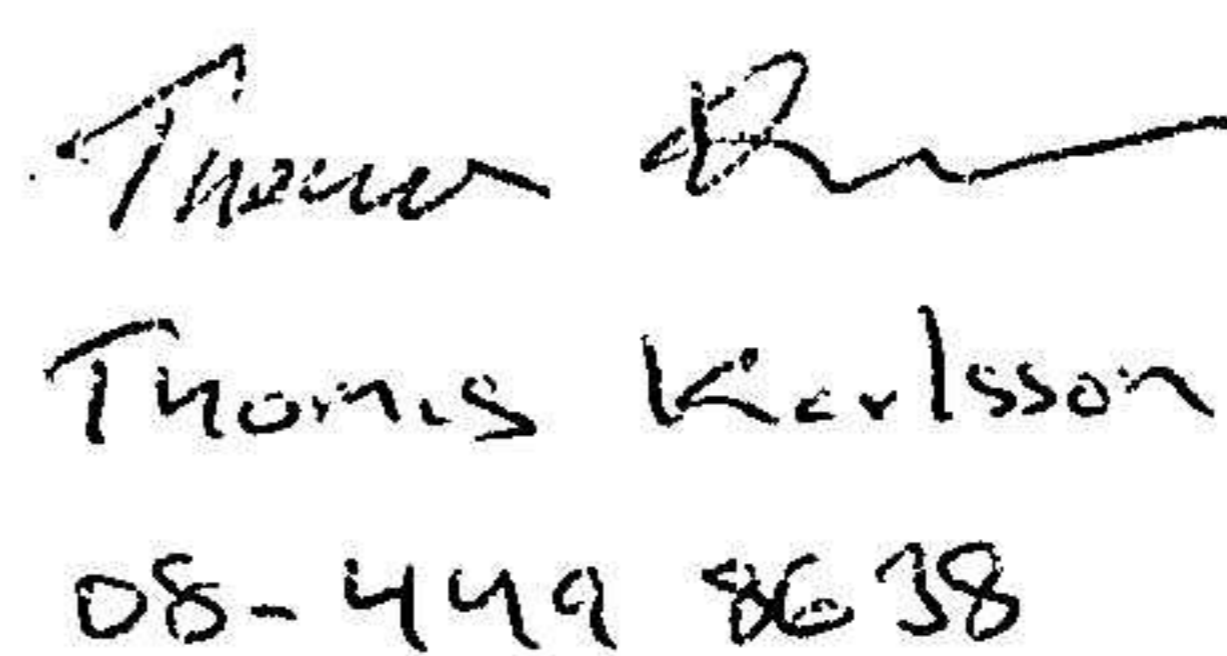 Thomas
Thomas Karlsson
08-449 8638